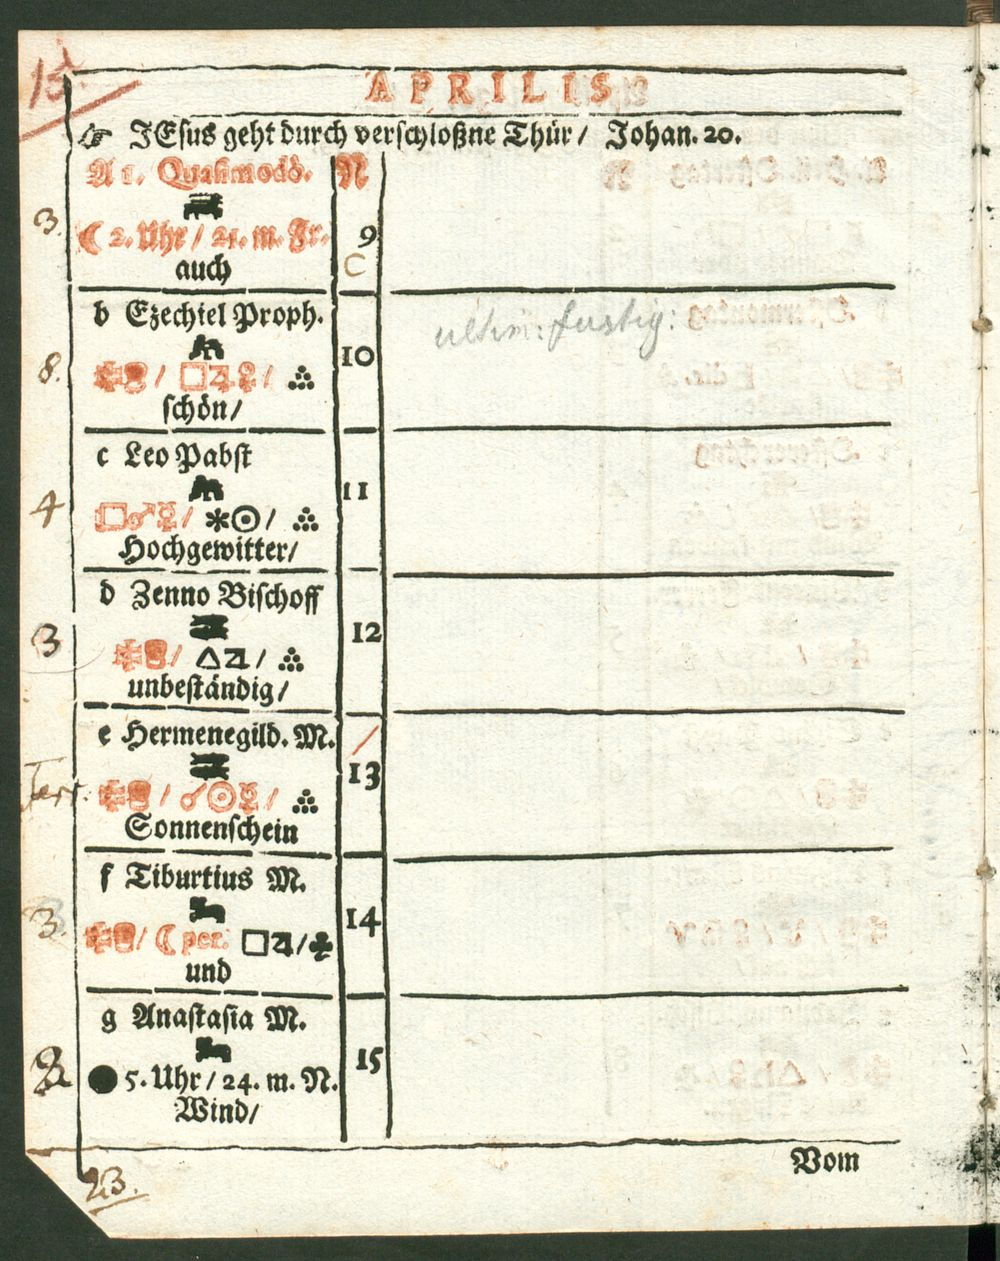 15
APRILIS
☞ JEsus geht durch verschloßne Thür / Johan. 20.
A 1. Quasimodò. N
3.
☾ 2. Uhr / 21. m. Fr. 9
auch C
b Ezechiel Proph.
ultim:
8. 10
□♃♀ / ∴
schön /
c Leo Pabst
4 11
□♂☿ / ✱☉ / ∴
Hochgewitter /
d Zenno Bischoff
3 12
/ △♃ / ∴
unbeständig /
e Hermenegild. M.
13
/ ☌☉☿ / ∴
Sonnenschein
f Tiburtius M.
3. 14
/ ☾ per. □♃ / ♣
und
g Anastasia M.
15
● 5. Uhr / 24. m. N.
Wind /
Vom
23.